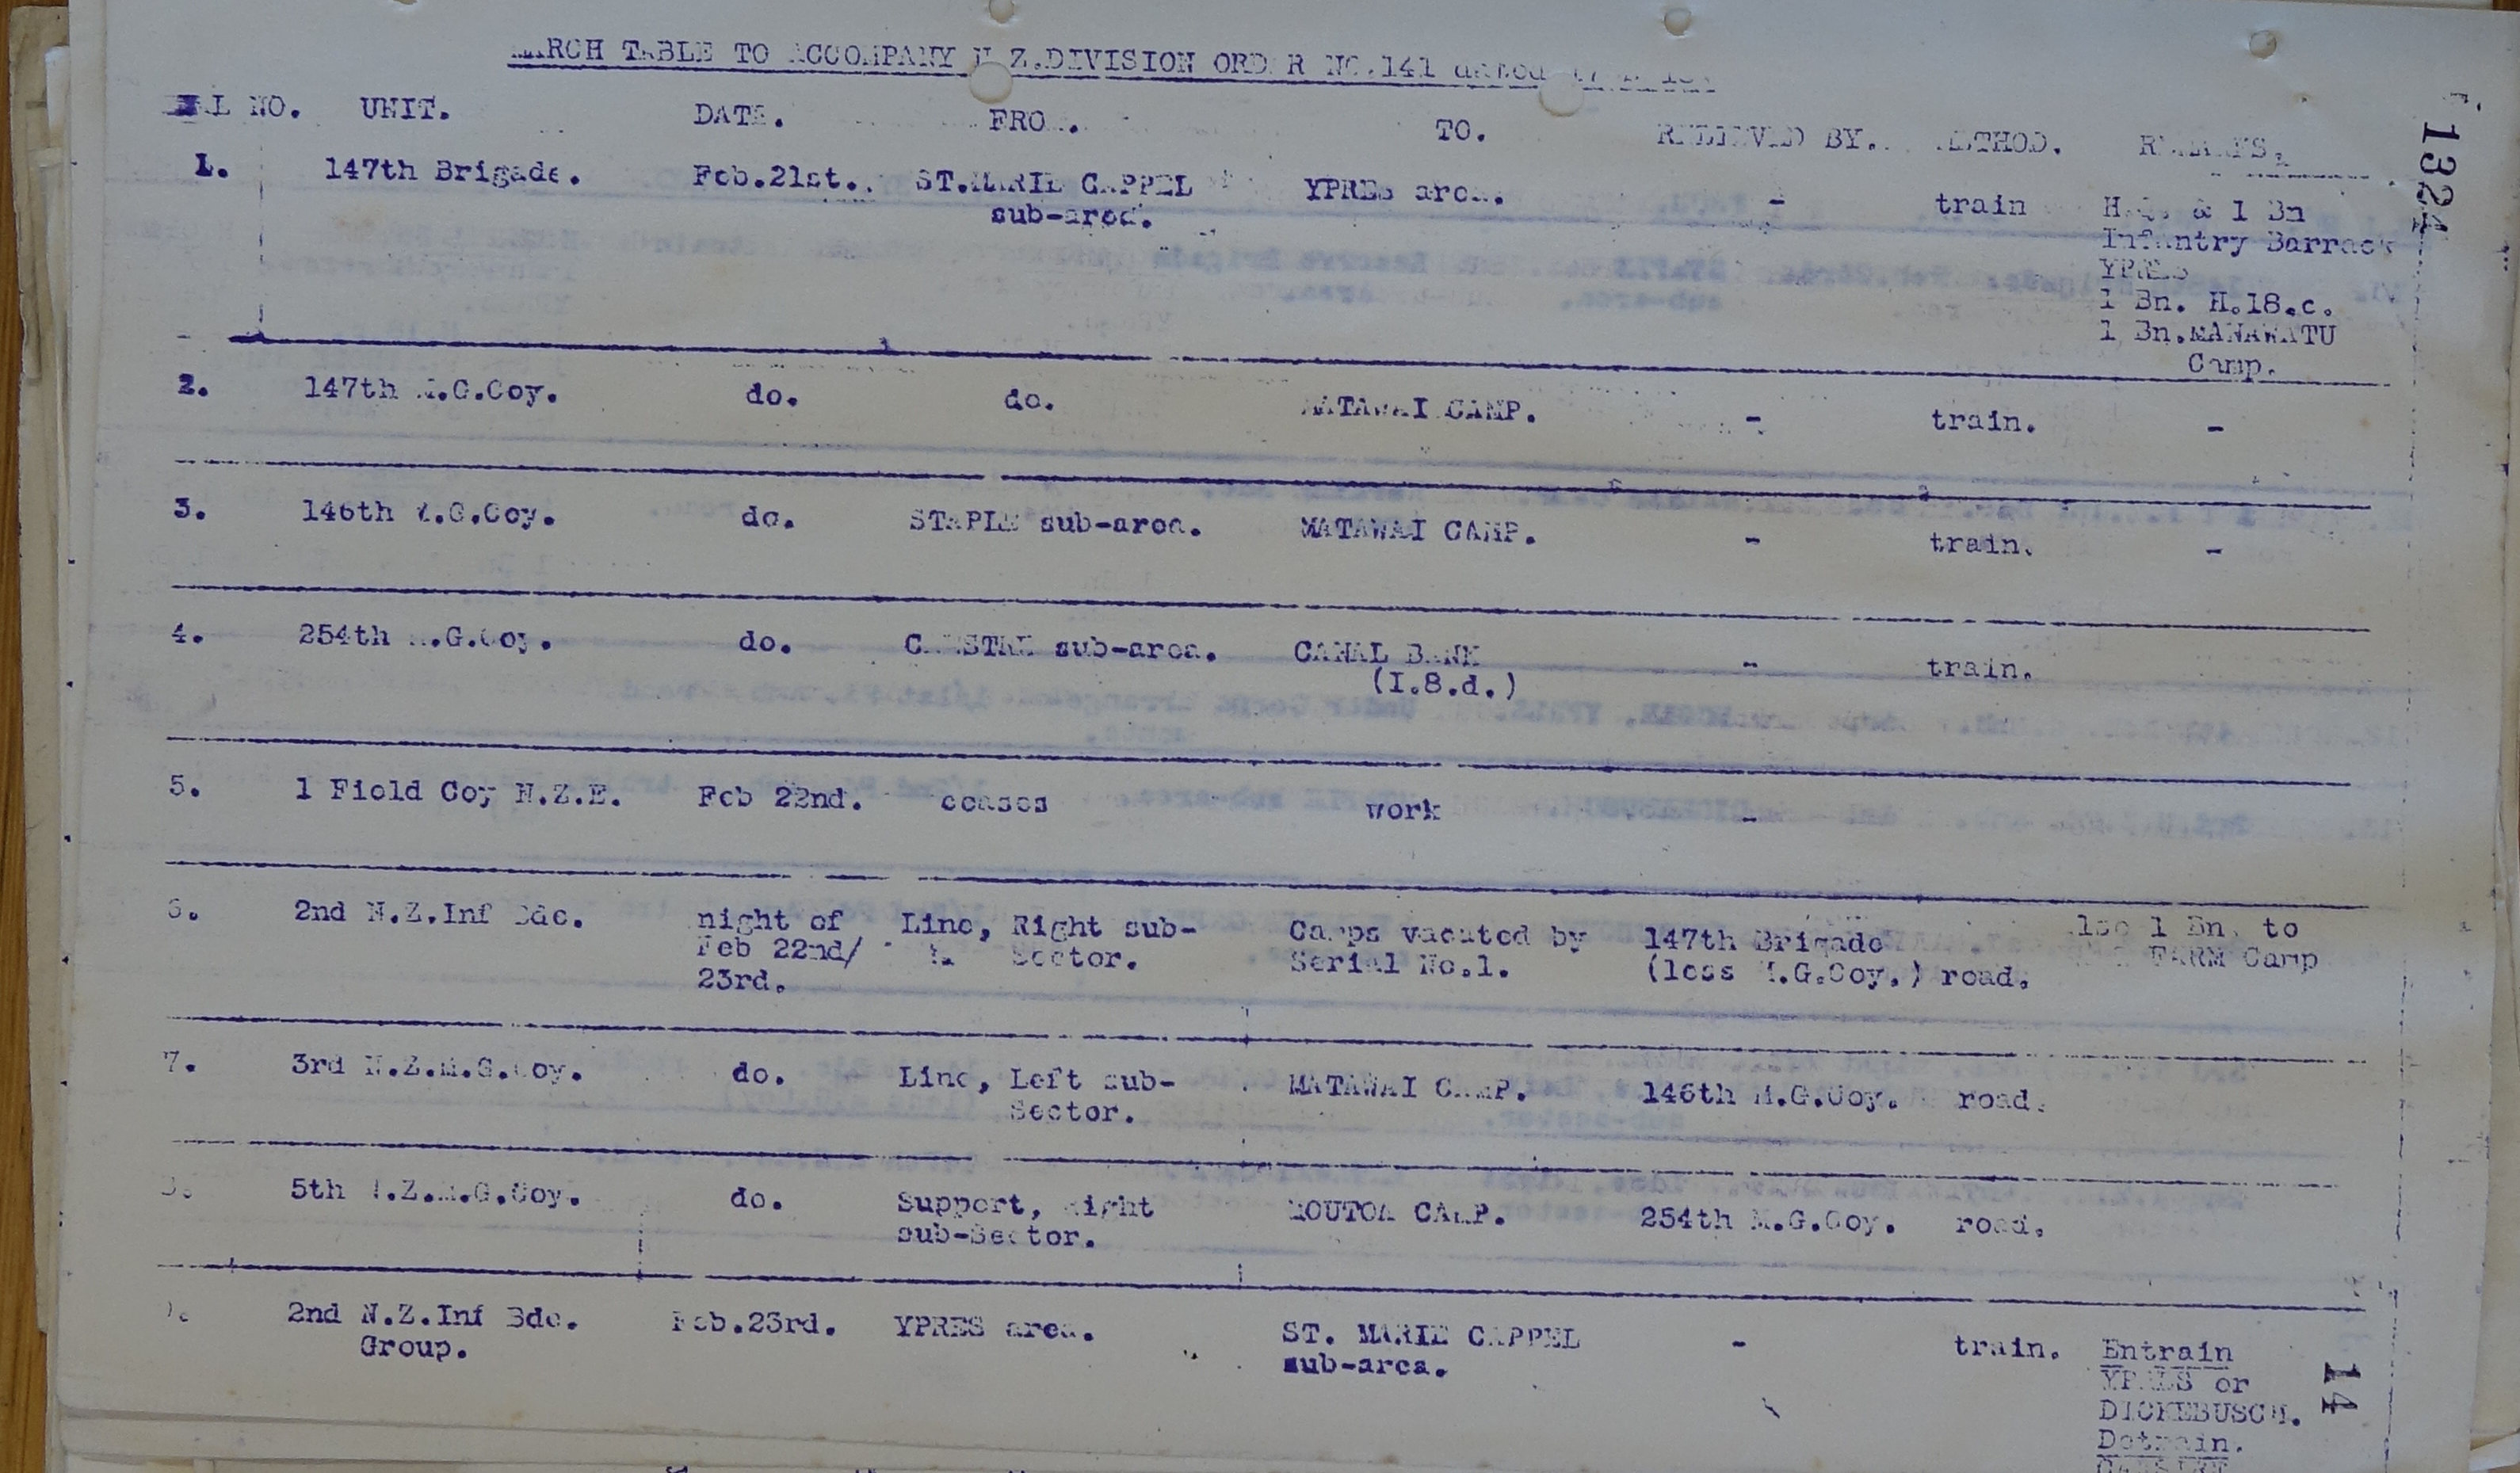 MARCH TABLE TO ACCOMPANY N.Z.DIVISION ORDER NO.141 dated
NO. UNIT. DATE. FROM. TO. RELIEVED BY. METHOD. REMARKS.
1. 147th Brigade. Feb.21st. ST.MARIE CAPPEL YPRES area. - train H.Q. & 1 Bn
sub-area. Infantry Barrack
YPRES
1 Bn. H.18.c.
1 Bn.MANAWATU
Camp.
2. 147th M.G.Coy. do. do. MATAWAI CAMP. - train. -
3. 146th M.G.Coy. do. STAPLE sub-area. MATAWAI CAMP. - train. -
4. 254th M.G.Coy. do. CAESTRE sub-area. CANAL BANK - train.
(I.8.d.)
5. 1 Field Coy N.Z.E. Feb 22nd. ceases work -
6. 2nd N.Z.Inf Bde. night of Line, Right sub- Camps vacated by 147th Brigade 1 Bn. to
Feb 22nd/ Sector. Serial No.1. (less M.G.Coy.) road. FARM Camp
23rd.
7. 3rd N.Z.M.G.Coy. do. Line, Left sub- MATAWAI CAMP. 146th M.G.Coy. road.
Sector.
8. 5th N.Z.M.G.Coy. do. Support, Right MOUTOA CAMP. 254th M.G.Coy. road.
sub-Sector.
2nd N.Z.Inf Bde. Feb.23rd. YPRES area. ST. MARIE CAPPEL - train. Entrain
Group. sub-area. YPRES or
DICKEBUSCH.
Detrain.
1324
14